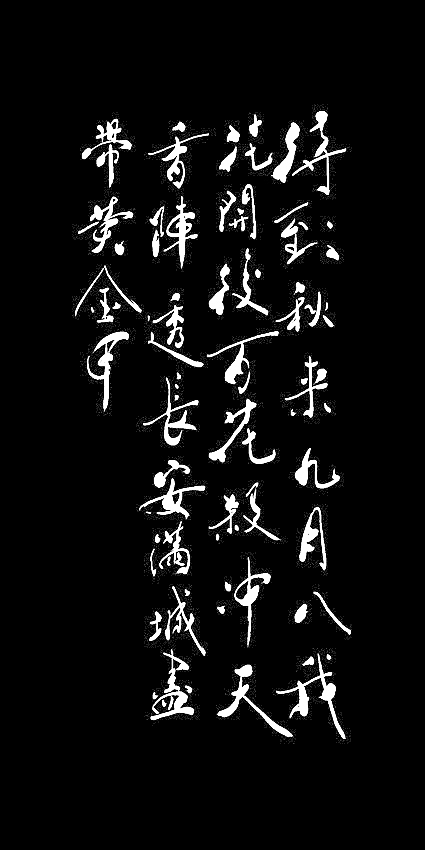 待到秋来九月八我
花開後百花殺冲天
香陣透長安滿城盡
帶黄金甲